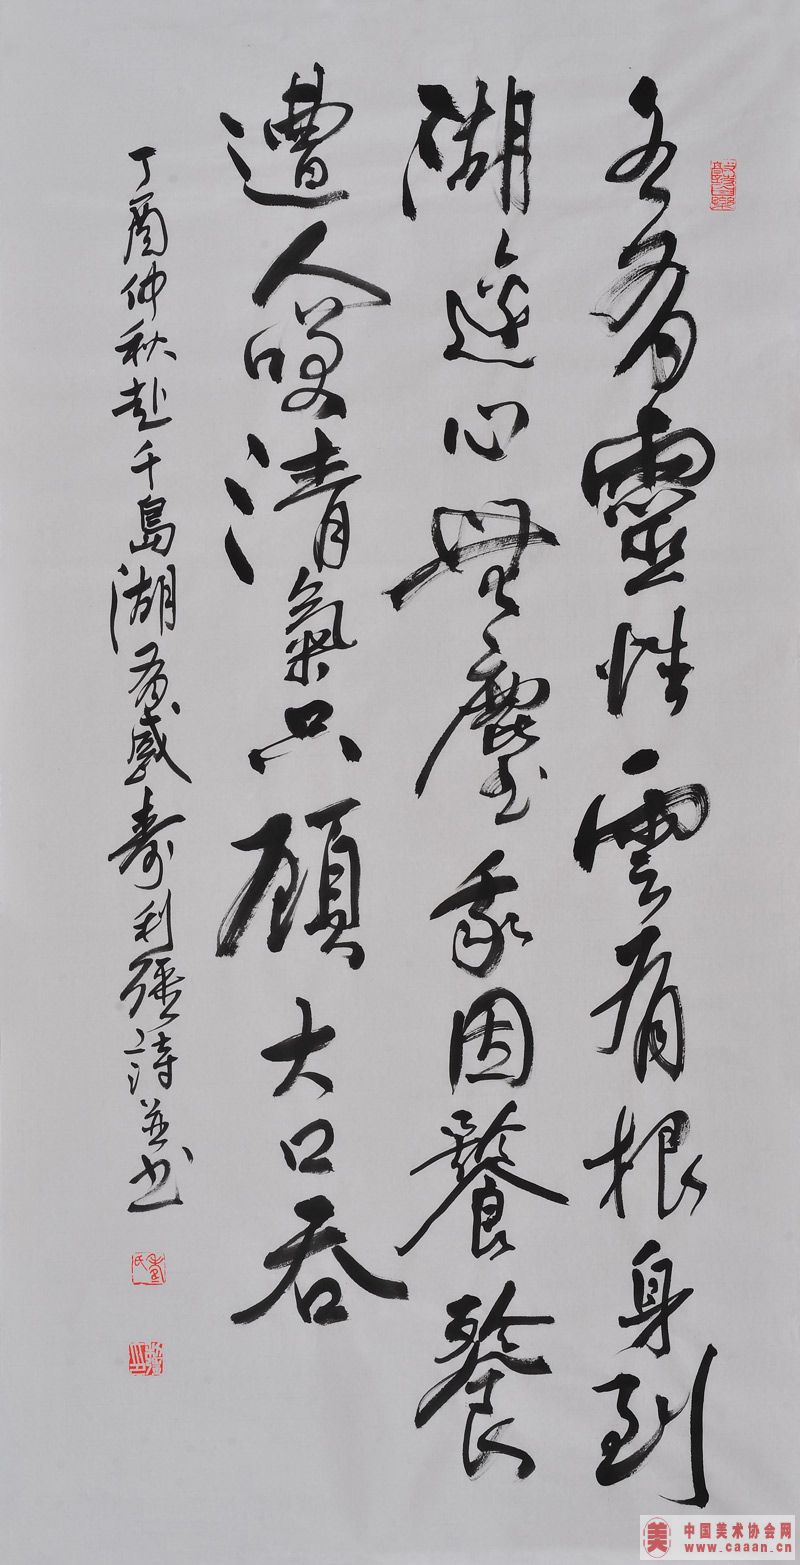 有靈性雲有根身到
湖邊心無塵我因饕餮
遭人清氣只顧大口吞
丁酉仲秋赴千島湖有感壽利強詩並书
美 中国美术协会网
www.caaan.cn